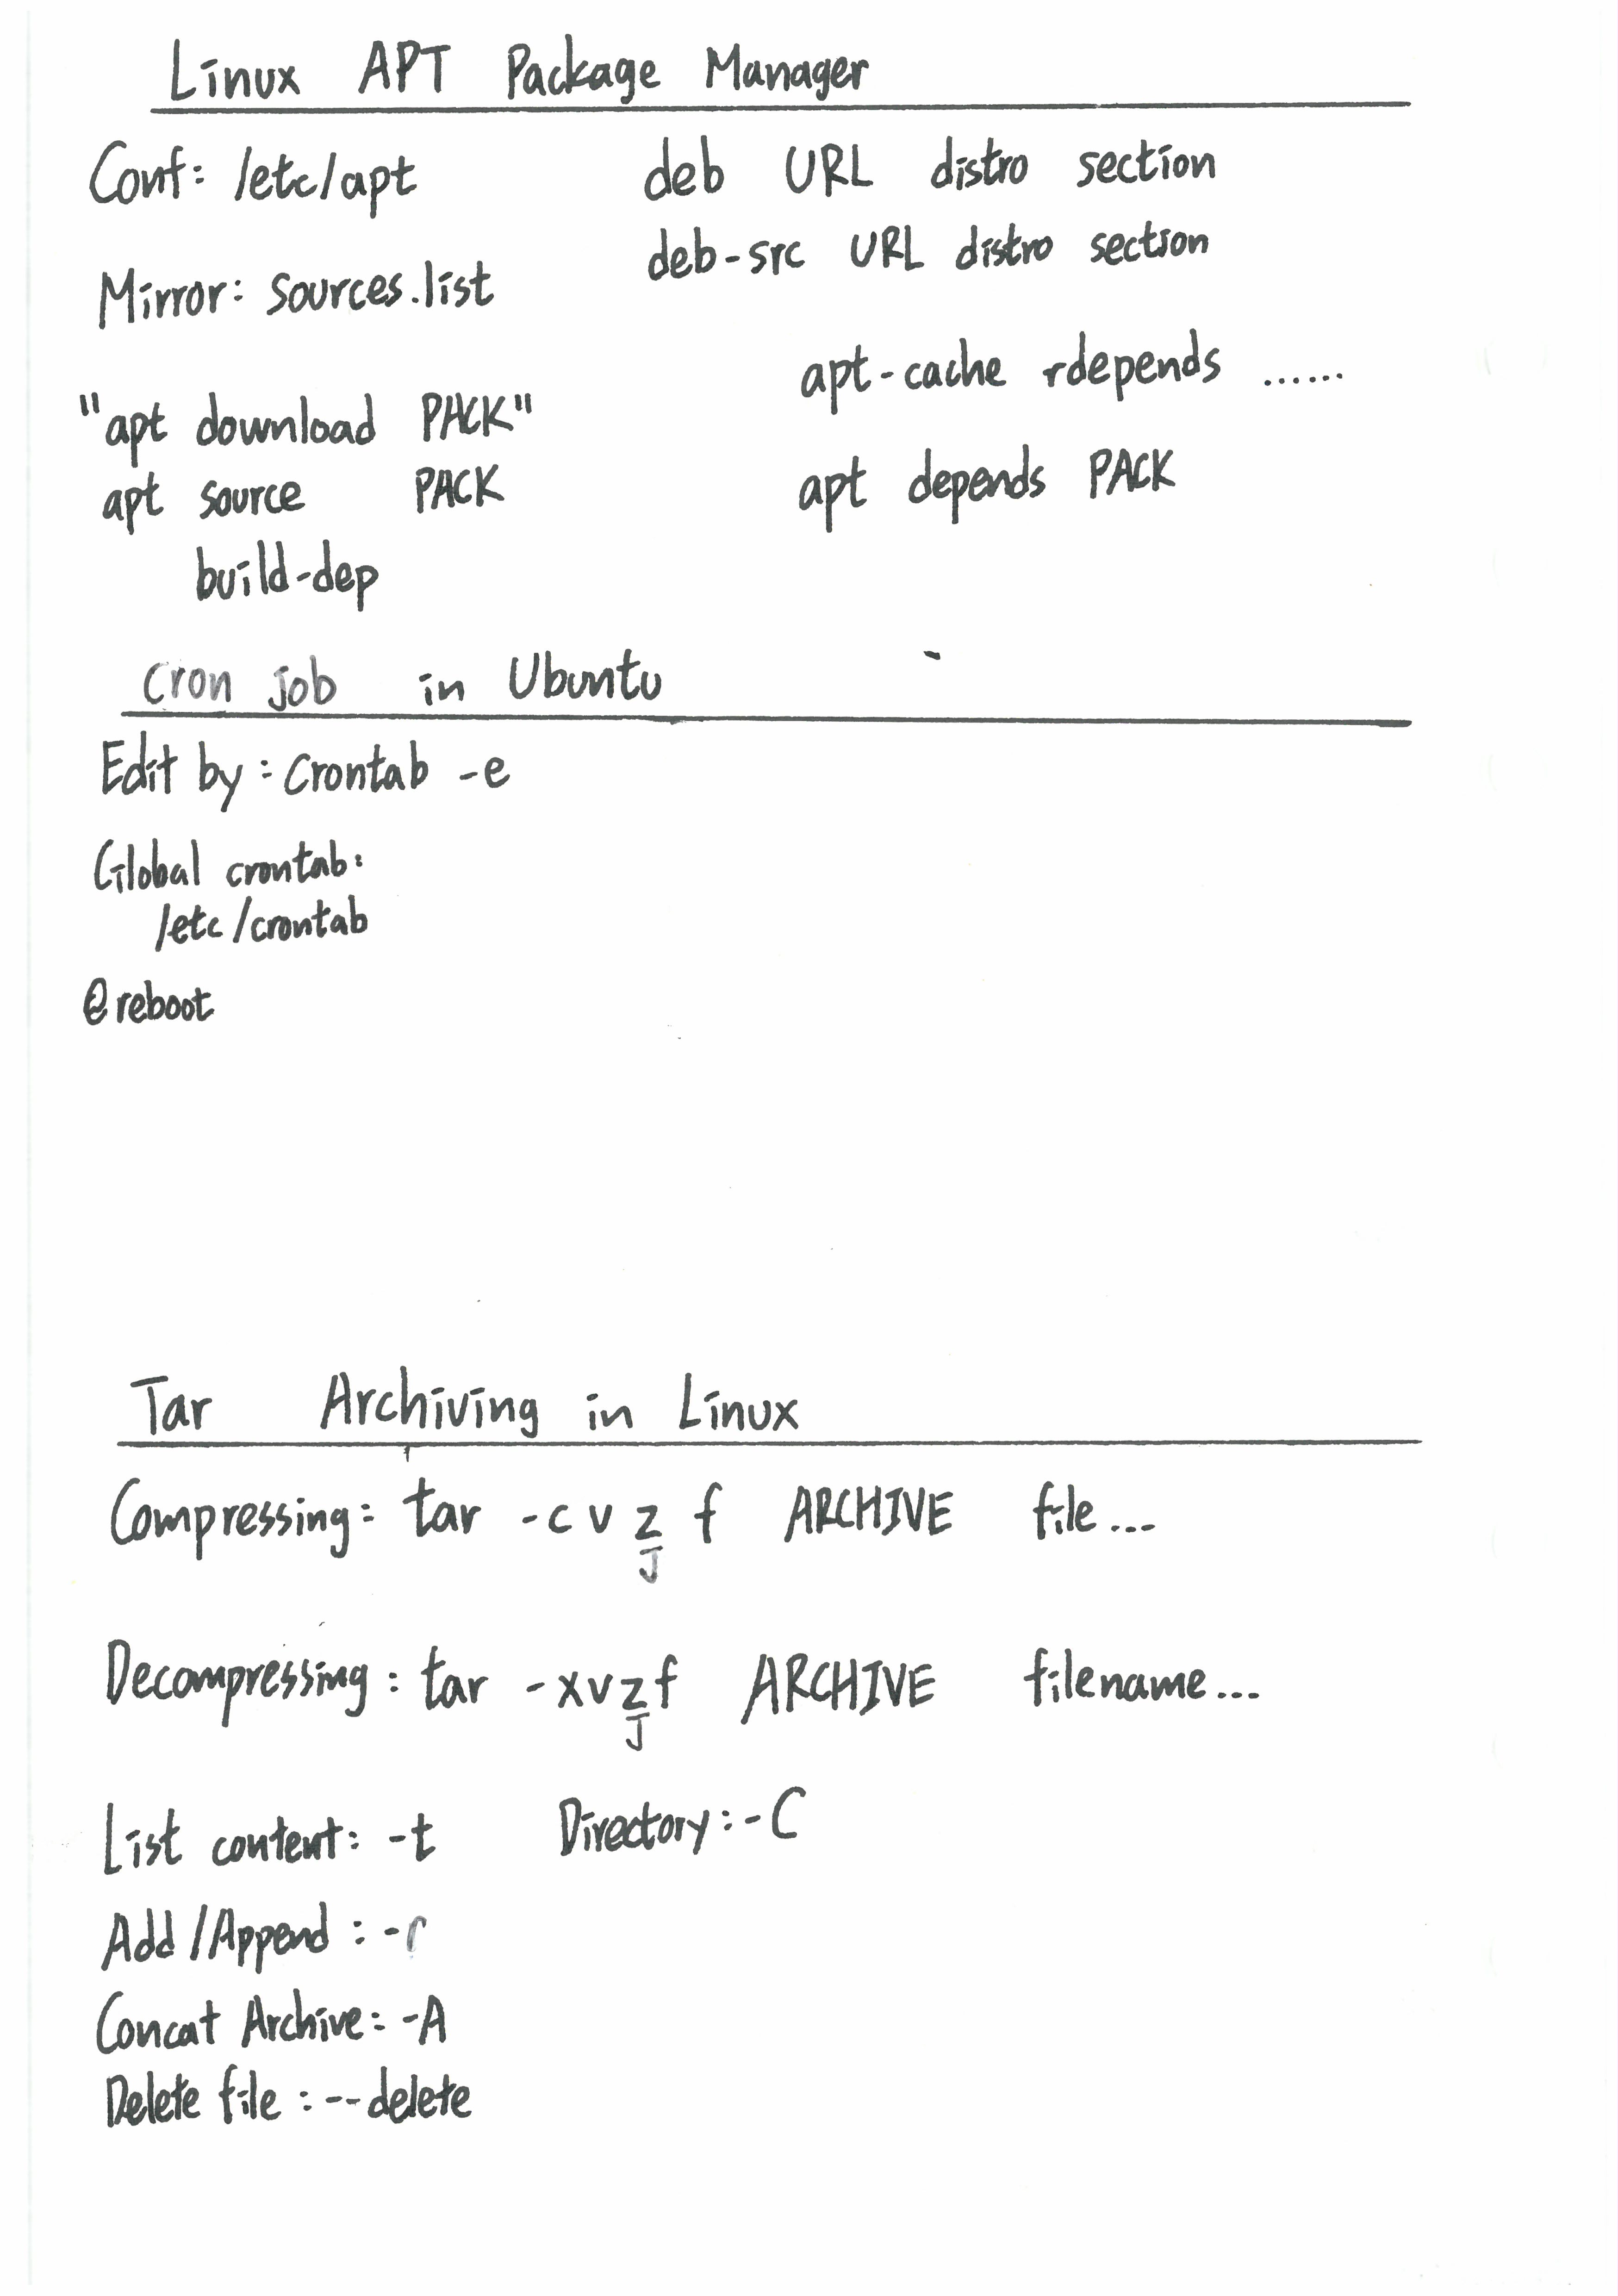 Linux APT Package Manager
Conf: /etc/apt
Mirror: sources.list
deb URL distro section
deb-src URL distro section
"apt download PACK"
apt source PACK
build-dep
apt-cache rdepends ......
apt depends PACK
Cron job in Ubuntu
Edit by: Crontab -e
Global crontab:
/etc/crontab
@reboot
Tar Archiving in Linux
Compressing: tar -c v z f ARCHIVE file...
J
Decompressing: tar -xvzf ARCHIVE filename...
J
List content: -t Directory: -C
Add/Append: -r
Concat Archive: -A
Delete file: --delete